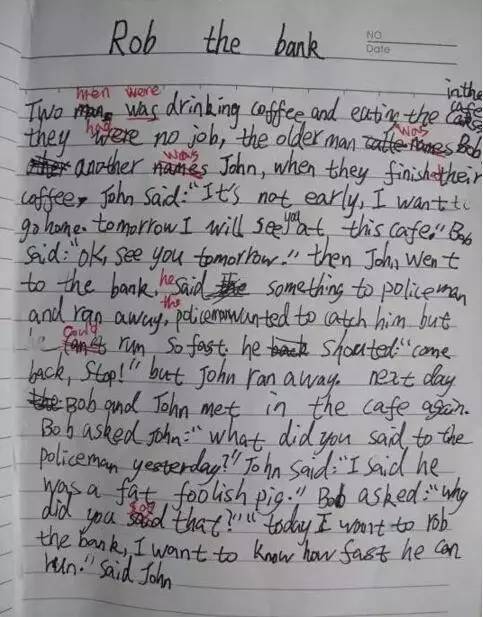 Rob the bank
NO
Date
in the
men were cafe
Two man was drinking coffee and eating the cakes
had was
they were no job, the older man names Bob
was
another names John, when they finished their
coffee, John said:"It's not early, I want to
you
go home. tomorrow I will see at this cafe." Bob
said:"ok, see you tomorrow." then John went
he
to the bank, said the something to policeman
the
and ran away, policeman wanted to catch him but
could
he can't run so fast. he back shouted:"come
back, stop!" but John ran away. next day
the Bob and John met in the cafe again.
Bob asked John:"what did you said to the
policeman yesterday?" John said:"I said he
was a fat foolish pig." Bob asked:"why
say
did you said that?" "today I want to rob
the bank, I want to know how fast he can
run." said John